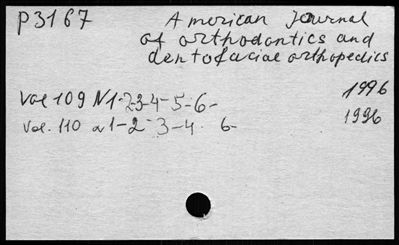 P3167 American Journal
of orthodontics and
dentofacial orthopedics
Vol 109 N1-2-3-4-5-6- 1996
Vol. 110 N1-2-3-4. 6- 1996